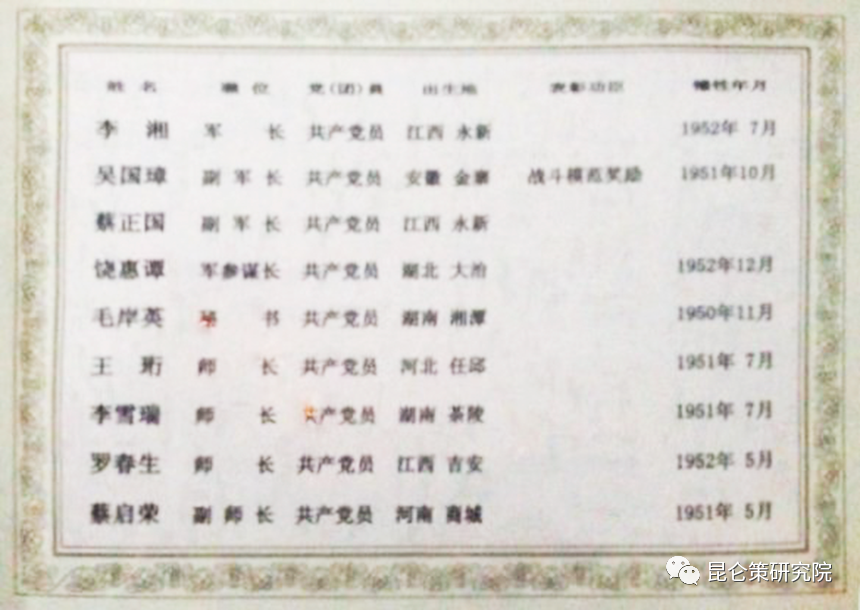 姓 名 职 位 党(团)员 出生地 表彰功臣 牺牲年月
李 湘 军 长 共产党员 江西 永新 1952年 7月
吴国璋 副 军 长 共产党员 安徽 金寨 战斗模范奖励 1951年10月
蔡正国 副 军 长 共产党员 江西 永新
饶惠谭 军参谋长 共产党员 湖北 大冶 1952年12月
毛岸英 秘 书 共产党员 湖南 湘潭 1950年11月
王 珩 师 长 共产党员 河北 任邱 1951年 7月
李雪瑞 师 长 共产党员 湖南 茶陵 1951年 7月
罗春生 师 长 共产党员 江西 吉安 1952年 5月
蔡启荣 副 师 长 共产党员 河南 商城 1951年 5月
昆仑策研究院